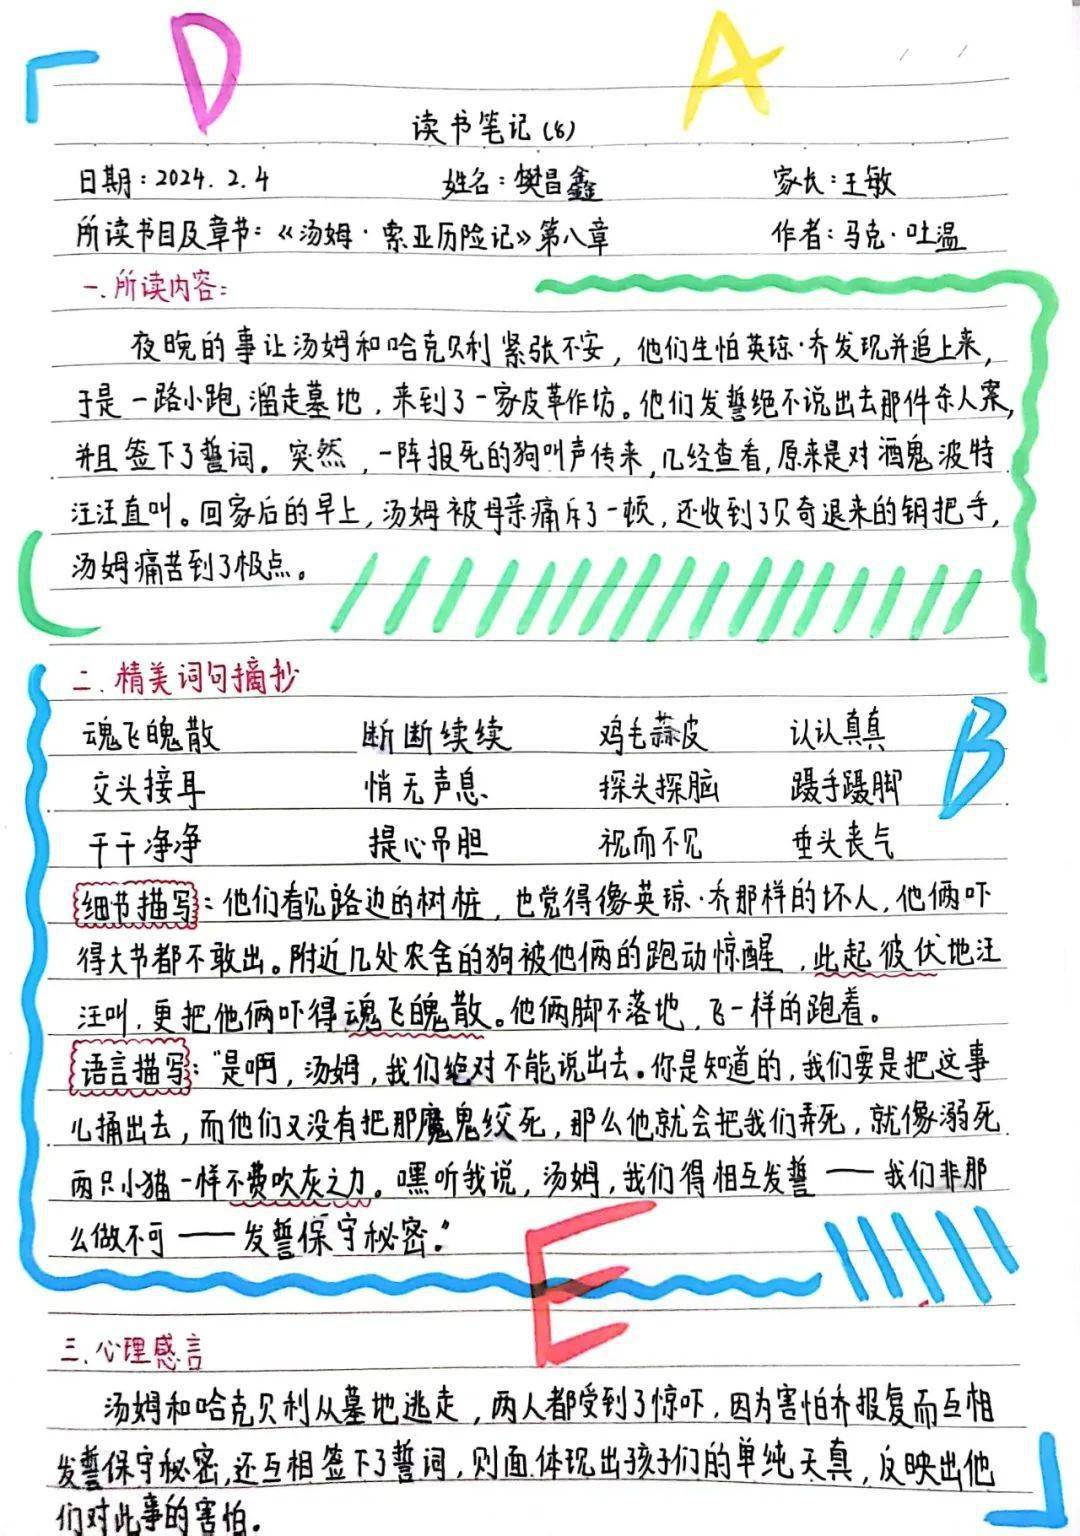 D A
读书笔记(8)
日期:2024.2.4 姓名:樊昌鑫 家长:王敏
所读书目及章节:《汤姆·索亚历险记》第八章 作者:马克·吐温
一.所读内容:
夜晚的事让汤姆和哈克贝利紧张不安,他们生怕英琼·乔发现并追上来,
于是一路小跑溜走墓地,来到了一家皮革作坊。他们发誓绝不说出去那件杀人案,
并且签下了誓词。突然,一阵报死的狗叫声传来,几经查看,原来是对酒鬼波特
汪汪直叫。回家后的早上,汤姆被母亲痛斥了一顿,还收到了贝奇退来的铜把手,
汤姆痛苦到了极点。
二.精美词句摘抄
魂飞魄散 断断续续 鸡毛蒜皮 认认真真
B
交头接耳 悄无声息 探头探脑 蹑手蹑脚
干干净净 提心吊胆 视而不见 垂头丧气
细节描写:他们看见路边的树桩,也觉得像英琼·乔那样的坏人,他俩吓
得大节都不敢出。附近几处农舍的狗被他俩的跑动惊醒,此起彼伏地汪
汪叫,更把他俩吓得魂飞魄散。他俩脚不落地,飞一样的跑着。
语言描写:"是啊,汤姆,我们绝对不能说出去。你是知道的,我们要是把这事
儿捅出去,而他们又没有把那魔鬼绞死,那么他就会把我们弄死,就像溺死
两只小猫一样不费吹灰之力。嘿听我说,汤姆,我们得相互发誓——我们非那
么做不可——发誓保守秘密."
E
三.心理感言
汤姆和哈克贝利从墓地逃走,两人都受到了惊吓,因为害怕乔报复而互相
发誓保守秘密,还互相签下了誓词,则面体现出孩子们的单纯天真,反映出他
们对此事的害怕.